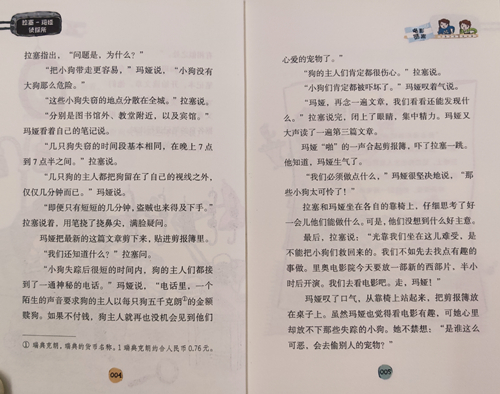 拉塞-玛娅
侦探所
拉塞指出，“问题是，为什么？”
“把小狗带走更容易，”玛娅说，“小狗没有
大狗那么危险。”
“这些小狗失窃的地点分散在全城。”拉塞说。
“分别是图书馆外、教堂附近，以及宾馆。”
玛娅看着自己的笔记说。
“几只狗失窃的时间段基本相同，在晚上7点
到7点半之间。”拉塞说。
“几只狗的主人都把狗留在了自己的视线之外，
仅仅几分钟而已。”玛娅说。
“即便只有短短的几分钟，盗贼也来得及下手。”
拉塞说着，用笔挠了挠鼻尖，满脸疑问。
玛娅把最新的这篇文章剪下来，贴进剪报簿里。
“我们还知道什么？”拉塞问。
“小狗失踪后很短的时间内，狗的主人们都接
到了一通神秘的电话。”玛娅说，“电话里，一个
陌生的声音要求狗的主人以每只狗五千克朗①的金额
赎狗。如果不付钱，狗主人就再也没机会见到他们
① 瑞典克朗，瑞典的货币名称。1瑞典克朗约合人民币0.76元。
004
电影
谜案
心爱的宠物了。”
“狗的主人们肯定都很伤心。”拉塞说。
“小狗们肯定都被吓坏了。”玛娅叹着气说。
“玛娅，再念一遍文章，我们看看还能发现什
么。”拉塞说完，闭上了眼睛，集中精力。玛娅又
大声读了一遍第三篇文章。
玛娅“啪”的一声合起剪报簿，吓了拉塞一跳。
他知道，玛娅生气了。
“我们必须做点什么，”玛娅很坚决地说，“那
些小狗太可怜了！”
拉塞和玛娅坐在各自的靠椅上，仔细思考了好
一会儿他们能做什么。可是，他们没想到什么好主意。
最后，拉塞说：“光靠我们坐在这儿难受，是
不能把小狗们救回来的。我们不如先去找点有趣的
事做。里奥电影院今天要放一部新的西部片，半小
时后开演。我们去看电影吧。走，玛娅！”
玛娅叹了口气，从靠椅上站起来，把剪报簿放
在桌子上。虽然玛娅也觉得看电影有趣，可她心里
却放不下那些失踪的小狗。她不禁想：“是谁这么
可恶，会去偷别人的宠物？”
005